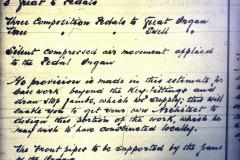 5 Great to Pedals
Three Composition Pedals to Great Organ
Three " " " Swell "
Silent compressed air movement applied
to the Pedal Organ
No provision is made in this estimate for
case work beyond the Key-fittings and
draw-stop jambs, which we supply; this will
enable you to get your own Architect to
design this portion of the work, which he
may wish to have constructed locally.
The front pipes to be supported by the frame
of the Organ